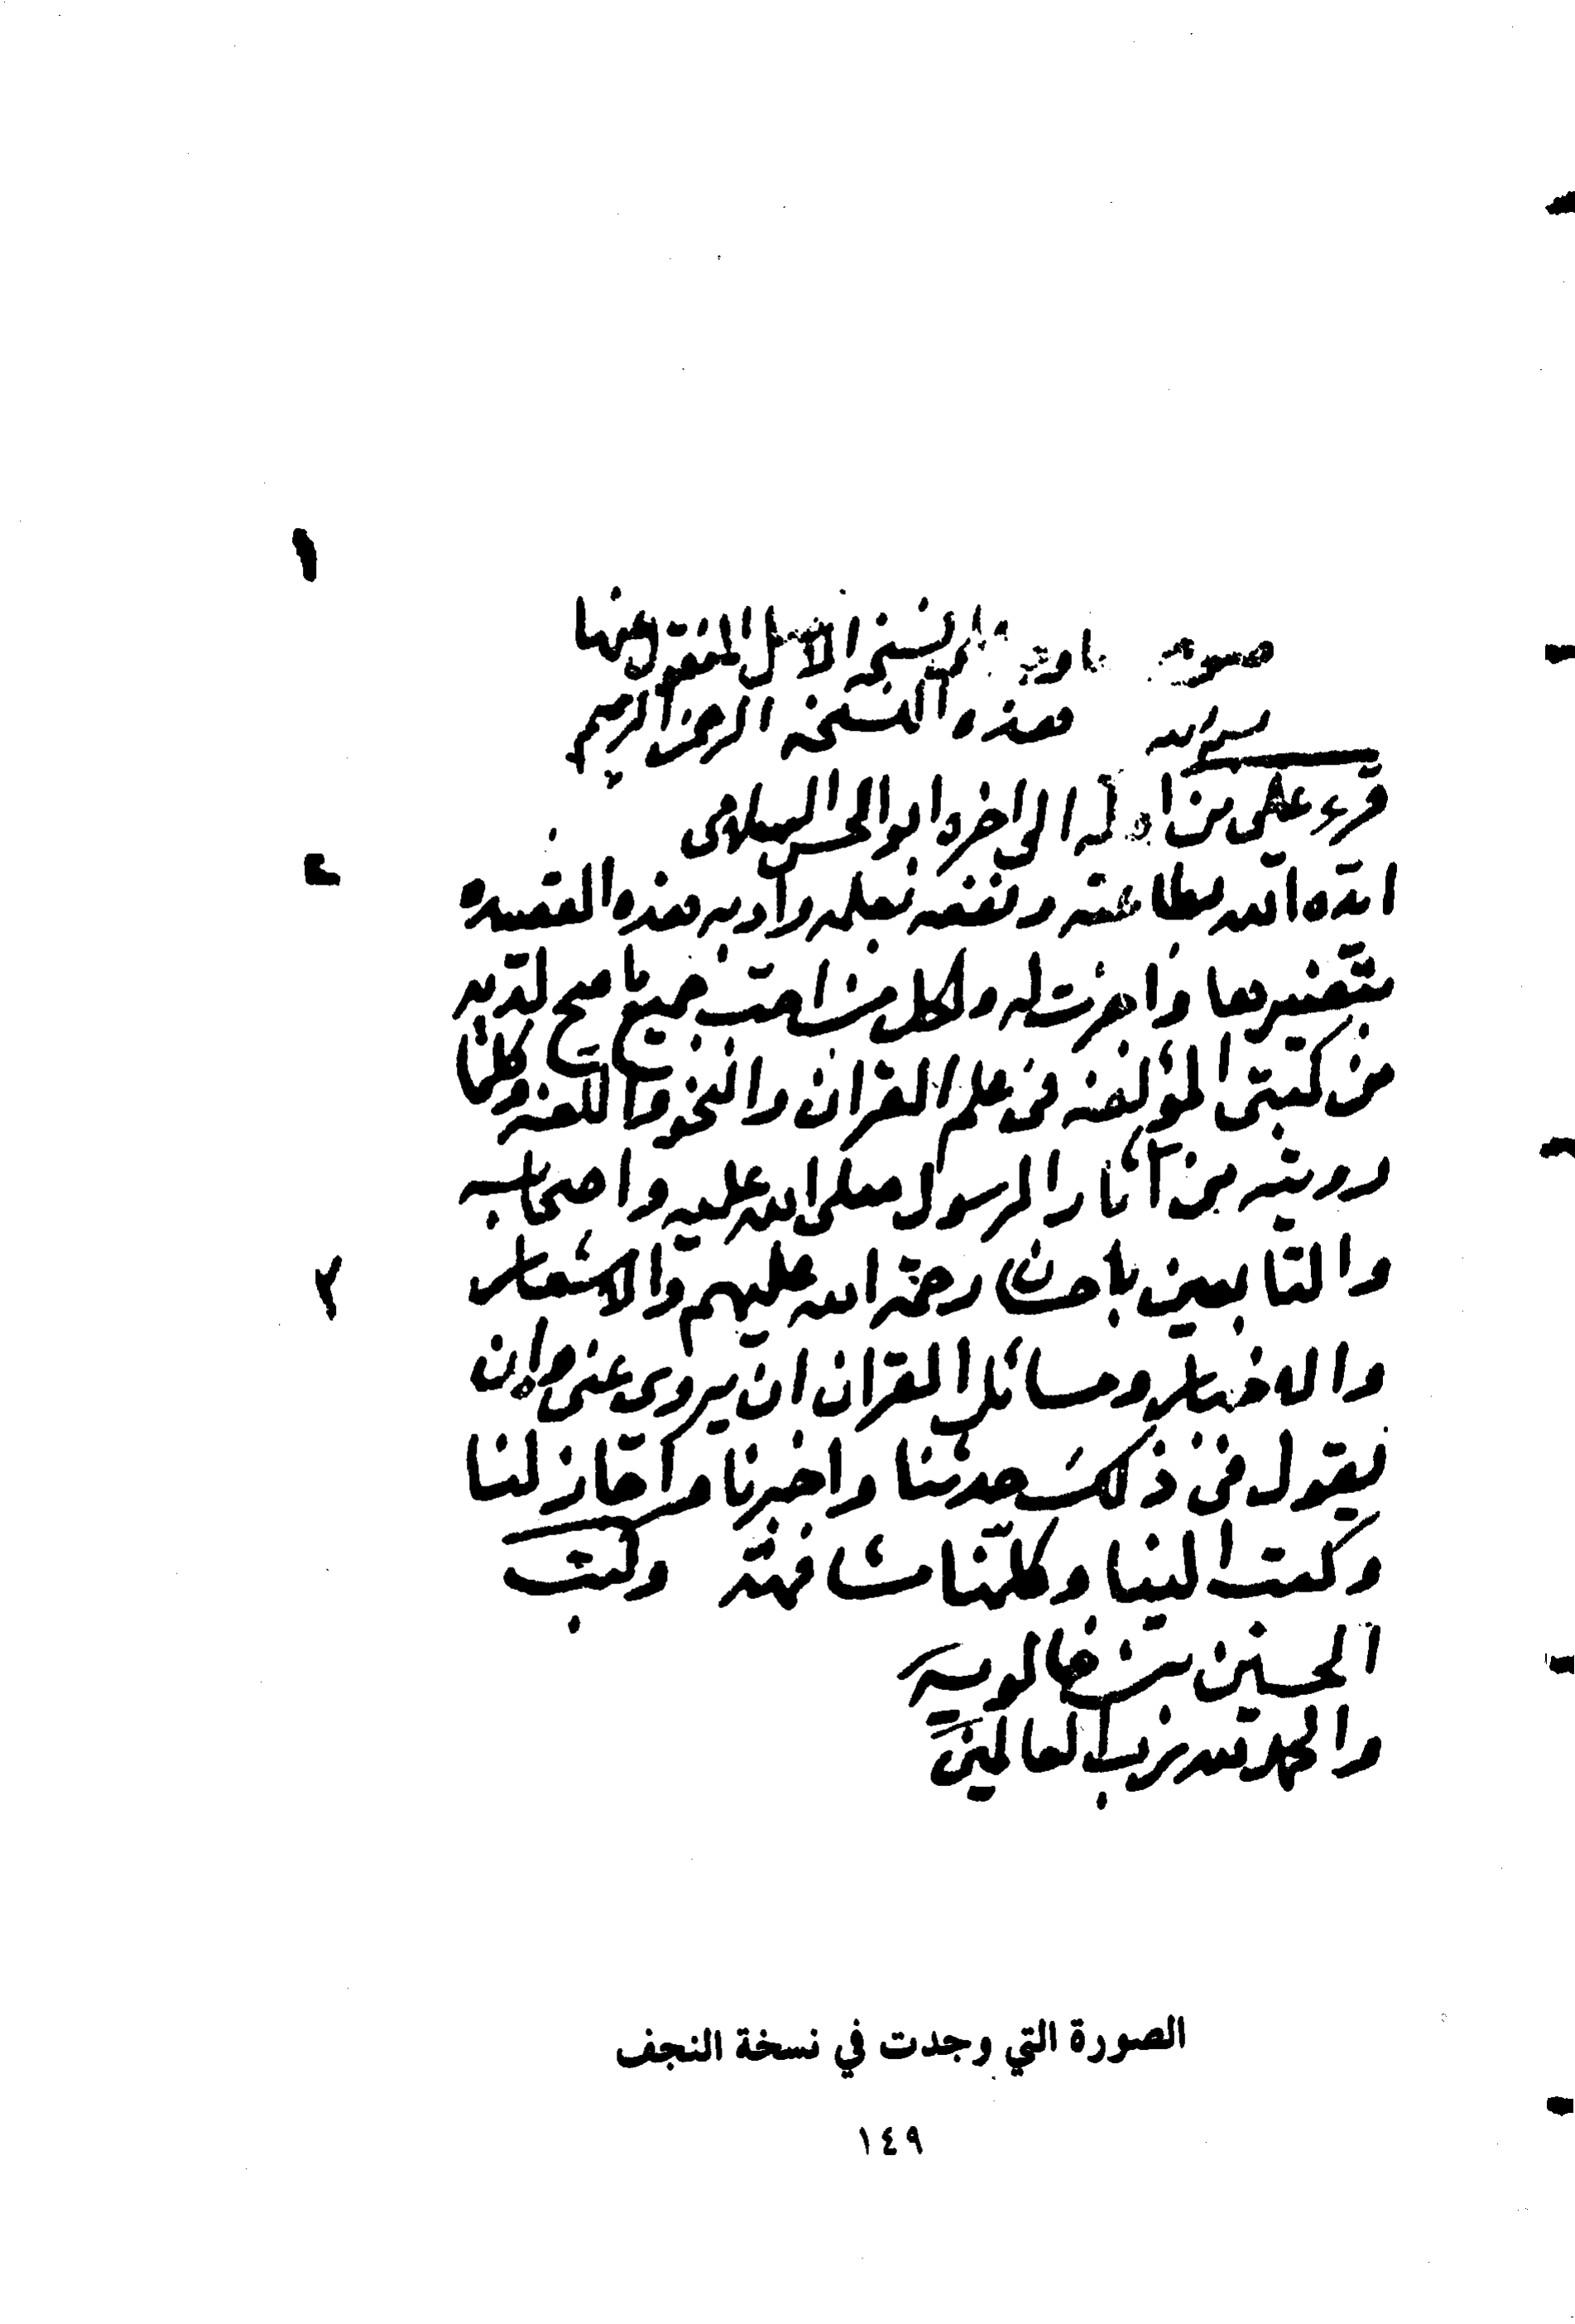 صورة ما وجد على النسخة الاصل المنقول عنها
هذه النسخة بسم الله الرحمن الرحيم
قرء علي من اوله الى اخره ابو الحسن السلامى
ايّده الله بطاعته ونفعه بعلمه وادبه هذه القصيدة
بتفسيرها واجزت له ولكل من احبّ جميع ما صحّ لديه
من كتبى المؤلفة فى علم القرآن والنحو واللغة وكلّما
رويته من آثار الرسول صلى الله عليه واصحابه
والتابعين باحسان رحمة الله عليهم والاشعار
والاخبار ومسائل القرآن ان يروى عنى وان
يقول فى ذلك حدثنا واخبرنا واجاز لنا
وكتب الينا وكلّمنا مشافهة وكتب
الحسين بن خالويه
والحمد لله رب العالمين
١
٢
الصورة التي وجدت في نسخة النجف
١٤٩